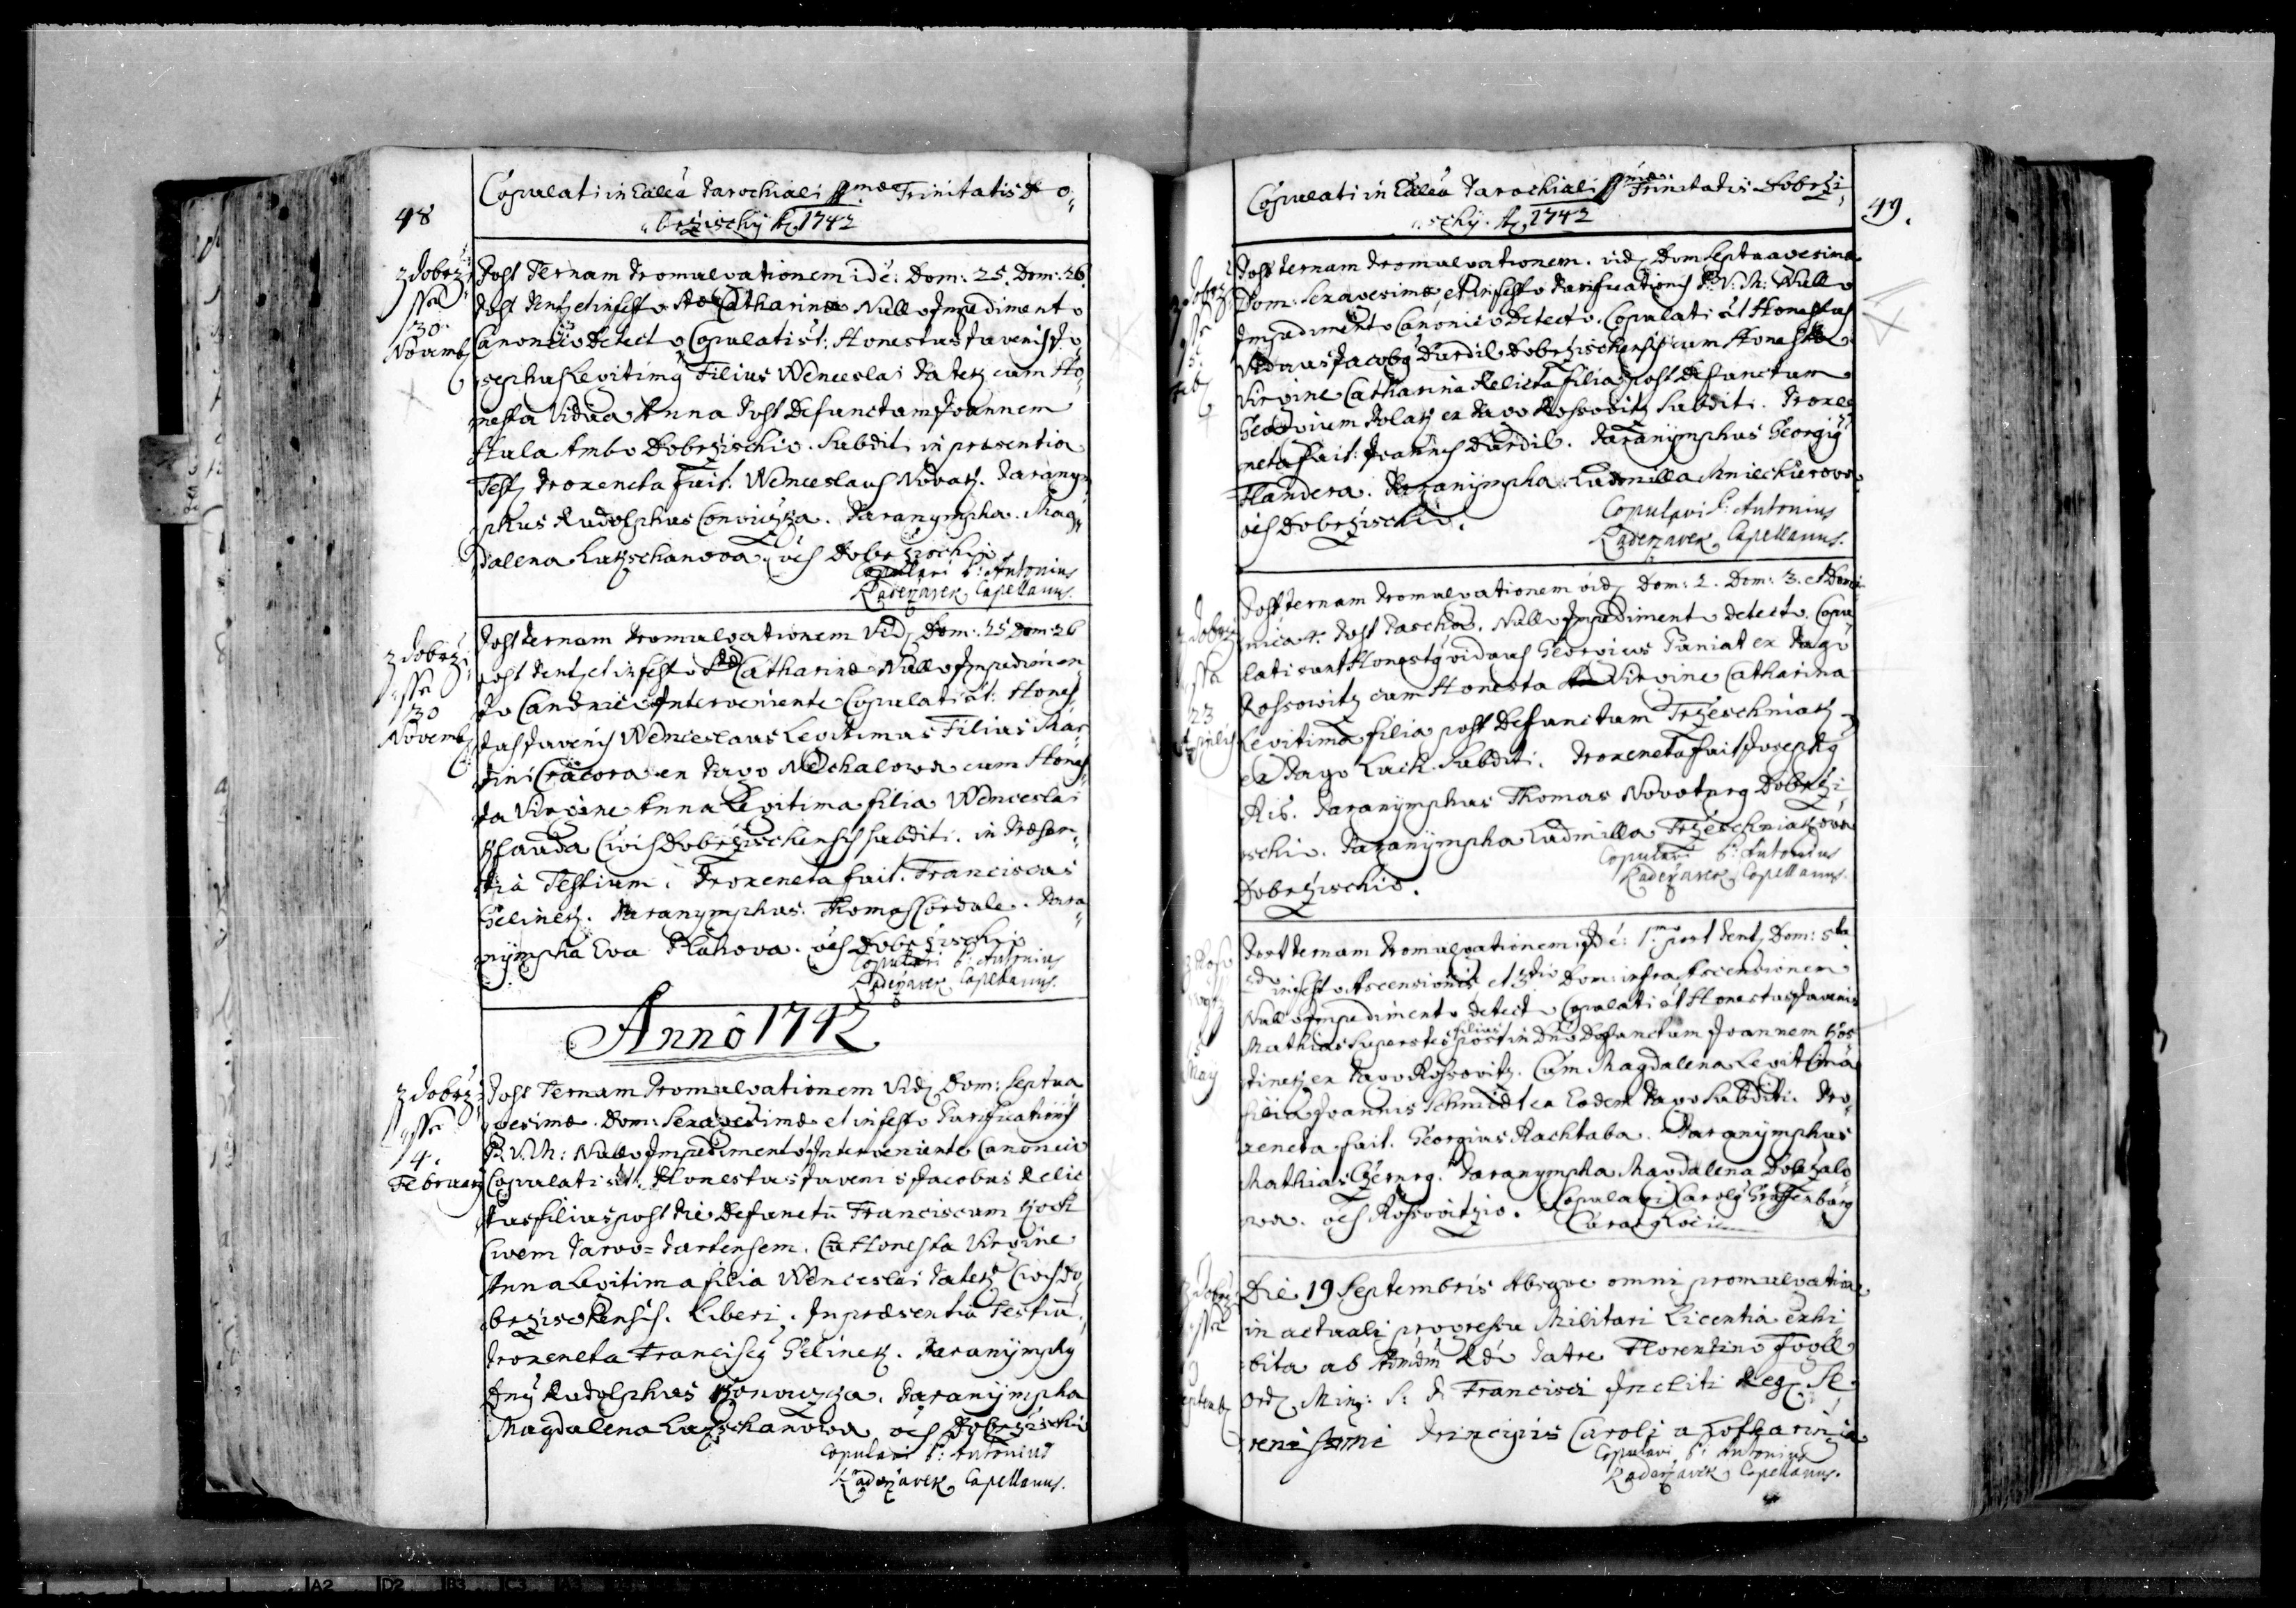 48
Copulati in Eccla Parochiali SSmae Trinitatis Do,,
,,brzischij Ao 1742
z Dobrzi,,
,,sse
30.
Novemb
Post Ternam Promulgationem ide: Dom: 25. Dom: 26.
post Pent, et in festo Stae Catharinae Nullo Impedimento
Canonico Detecto Copulati st: Honestus Juvenis Jo,,
,,sephus Legitimg Filius Wenceslai Patek cum Ho,,
nesta Vidua Anna Post Defunctum Joannem
Skala Ambo Dobrzischio Subditi in praesentia
Test, Proxeneta fuit: Wenceslaus Novak. Parany,,
phus Rudolphus Convicka. Paranympha. Mag,,
dalena Latzchanova. oes Dobrzischio
Copulavi P: Antonius
Kaderzavek Capellanus.
z Dobrzi,,
,,sse
30
Novemb
Post ternam Promulgationem Vid, Dom: 25 Dom: 26
post Pent, et in festo Stae Catharinae Nullo Impedimen,,
to Canonico Interveniente Copulati st: Hones,,
tus Juvenis Wenceslaus Legitimus Filius Mar,,
tini Cracora ex Pago Nechalowa cum Hones,,
ta Virgine Anna Legitima filia Wenceslai
Civis Dobrzischensis subditi. in Praesen,,
tia Testium. Proxeneta fuit. Franciscus
Gelinek. Paranymphus. Thomas Cordule. Para,,
nympha Eva Blahova. oes Dobrzischio
Copulavi P: Antonius
Kaderzavek Capellanus.
Anno 1742
z Dobrzi,,
,,sse
4.
Februarij
Post Ternam Promulgationem Vid, Dom: Septua
gesimae. Dom: Sexagesimae et in festo Purificationis
B. V. M: Nullo Impedimento Interveniente Canonico
Copulati st. Honestus Juvenis Jacobus Relic
tus filius post Pie Defunctu Franciscum Hock
Civem Parvo=Partensem. Cu Honesta Virgine
Anna Legitima filia Wenceslai Patek Civis Do,,
brzischensis. Liberi. In praesentia Testiu.
Proxeneta Francisg Gelinek. Paranymphg
Dng Rudolphus Konowicka. Paranympha
Magdalena Latzchanowa oes Dobrzischio
Copulavi P: Antonius
Kaderzavek Capellanus.
49.
Copulati in Eccla Parochiali SSmae Trinitatis Dobrzi,,
,,schij. Ao 1742
z Dobrzi
sse
5.
Feb
Post ternam Promulgationem. vid, Dom Septuagesimae
Dom: Sexagesimae, et in festo Purificationis B: V: M: Nullo
Impedimento Canonico Detecto. Copulati st Honestus
Viduus Jacobg Durdil Dobrzischensis cum Honesta
Virgine Catharina Relicta filia post Defunctum
Georgium Polak ex Pago Rossowitz Subditi. Proxe
neta fuit: Joannes Durdil. Paranymphus Georgig
Handera. Paranympha: Ludmilla
oes Dobrzischio.
Copulavi P: Antonius
Kaderzavek Capellanus.
z Dobrzi
,,sse
23
Aprilis
Post ternam Promulgationem vid, Dom: 2. Dom: 3. et Domi
nica 4. Post Pascha. Nullo Impedimento detecto. Copu
lati sunt Honestg viduus Georgius Puniat ex Pago
Rossowitz cum Honesta Virgine Catharina
Legitima filia post Defunctum Trzeschniak
ex Pago Luck Subditi. Proxeneta fuit Josephg
Ris. Paranymphus Thomas Novotnrg Dobrzi,,
schio. Paranympha Ludmilla Trzeschniakova
Dobrzischio.
Copulavi P: Antonius
Kaderzavek Capellanus.
May
Post ternam Promulgationem ide: 1mo post Pent, Dom: 5ta
2do in festo Ascensionis et 3tio Dom: infra Ascensionem
Nullo Impedimento detecto Copulati st Honestus Juvenis
Mathias Superstes filius post in Dno Defunctum Joannem Hos
tinek ex Pago Rossovitz. Cum Magdalena Legitima
filia Joannis Schmidt ex Eodem Pago Subditi. Pro,,
xeneta fuit. Georgius Rachtaba. Paranymphus
Mathias Czernrg. Paranympha Magdalena Dolezalo
wa. oes Rossovitzio. Copulavi Carolg Graffenburg
Curatg Loci
z Dobrzi
,,sse
19
Septemb
Die 19 Septembris Absque omni promulgatione
in actuali progressu Militari Licentia exhi
bita ab Admdm Rdo Patre Florentino Foglt
Ord, Min: S: P. Francisci Incliti Reg, Se,,
renissimi Principis Caroli a Lotharingia
Copulavi P: Antonius
Kaderzavek Capellanus.